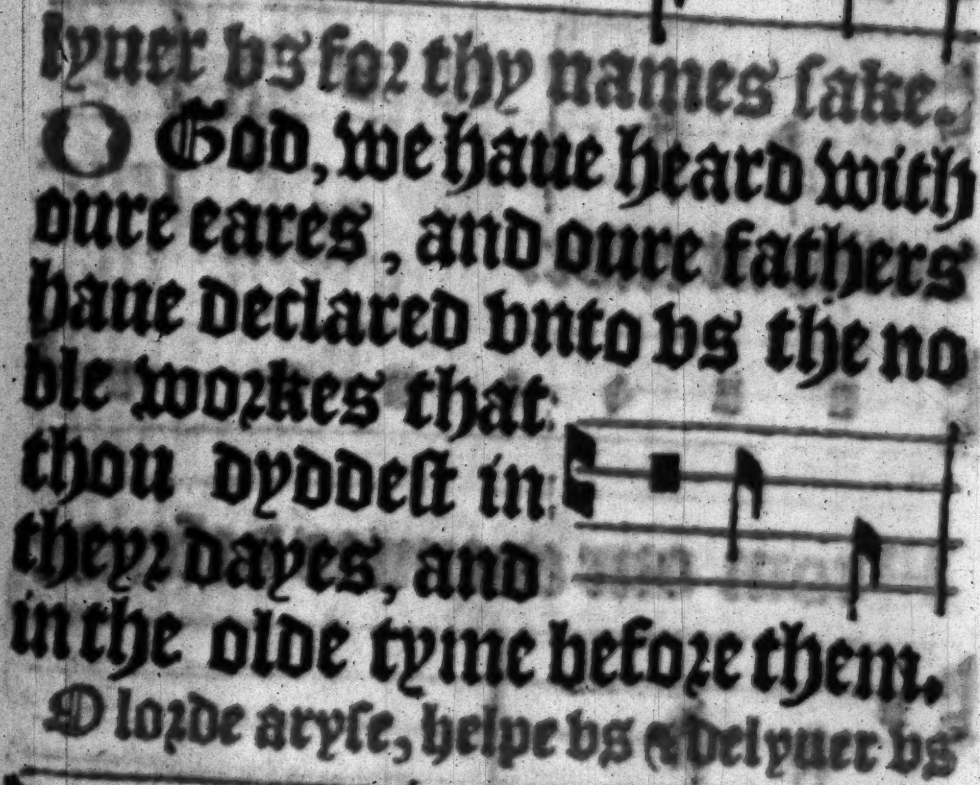 lyuer vs for thy names sake.
O God, we haue heard with
oure eares, and oure fathers
haue declared vnto vs the no
ble workes that
thou dyddest in
theyr dayes, and
in the olde tyme before them.
O lorde aryse, helpe vs & delyuer vs